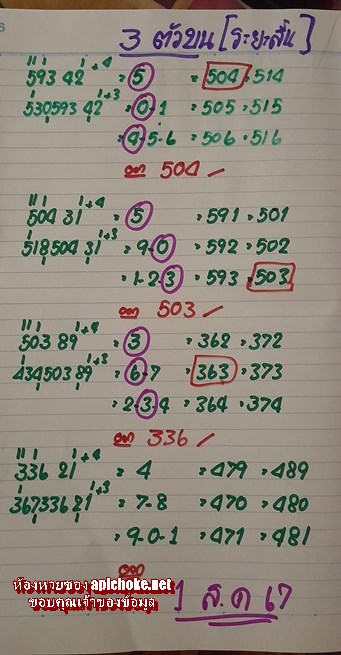 3 ตัวบน [ระยะสั้น]
593 42 +4 = 5 = 504 = 514
530593 42 +3 = 0-1 = 505 = 515
= 4-5-6 = 506 = 516
ออก 504 ✓
504 31 +4 = 5 = 591 = 501
518504 31 +3 = 9-0 = 592 = 502
= 1-2-3 = 593 = 503
ออก 503 ✓
503 89 +4 = 3 = 362 = 372
434503 89 +3 = 6-7 = 363 = 373
= 2-3-4 = 364 = 374
ออก 336 ✓
336 21 +4 = 4 = 479 = 489
367336 21 +3 = 7-8 = 470 = 480
= 9-0-1 = 471 = 481
ออก
ห้องหวยของ apichoke.net
ขอบคุณเจ้าของข้อมูล
1 ส.ค 67